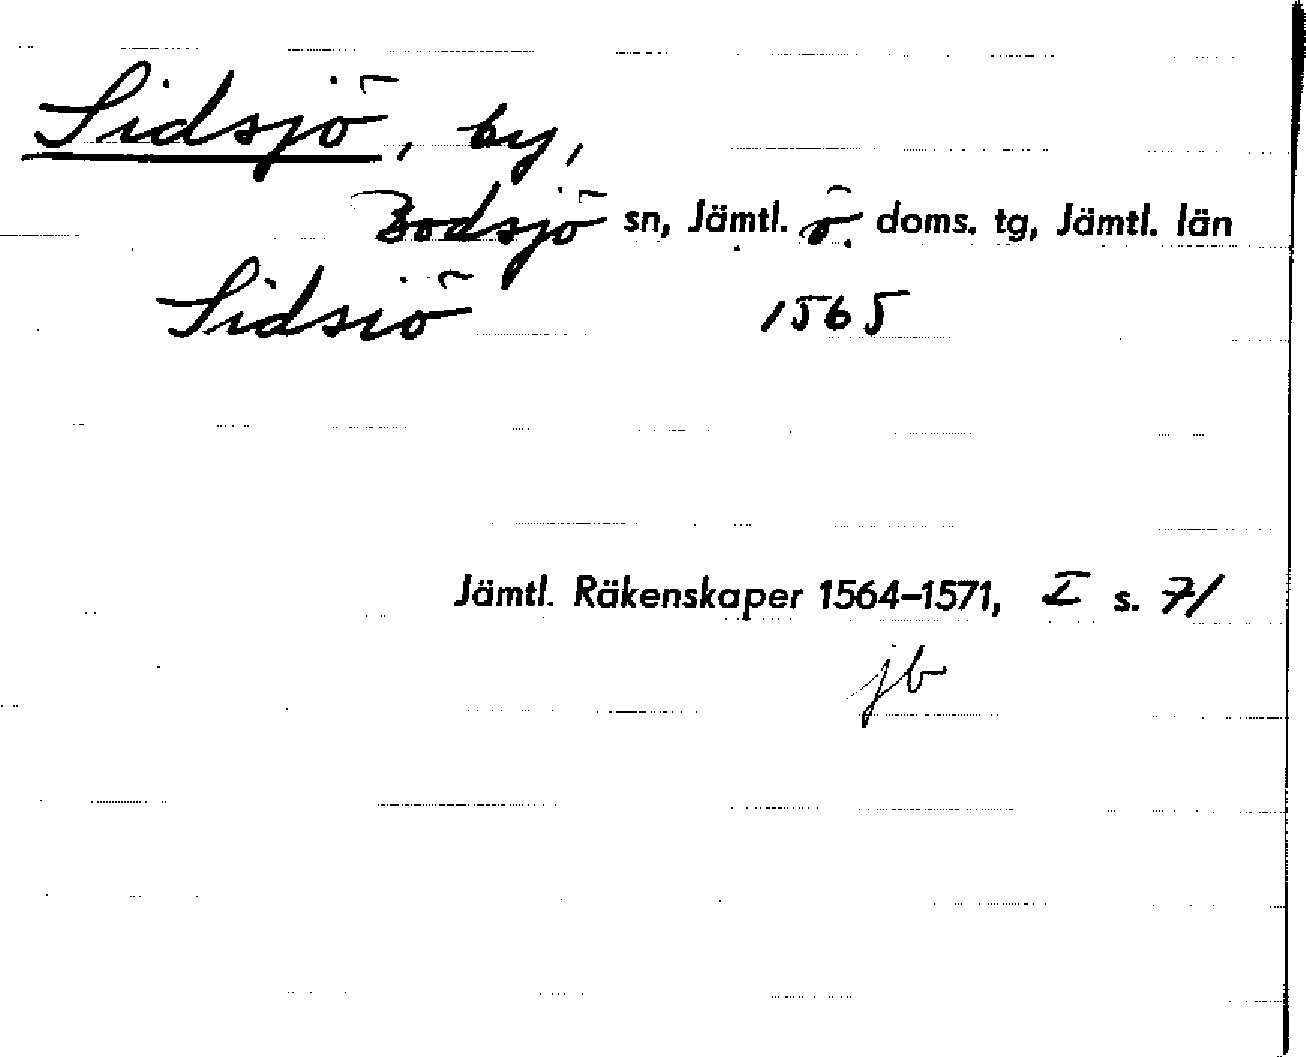 Sidsjö, by,
Bodsjö sn, Jämtl. ö. doms. tg, Jämtl. län
Sidsiö 1565
Jämtl. Räkenskaper 1564–1571, I s. 71
jb